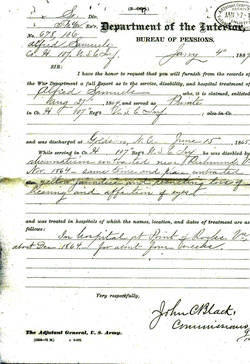 (3—060.)
Department of the Interior,
BUREAU OF PENSIONS,
No. 678.186
Alfred Samuels
Co. H 107 U.S.C. Inf. Jany 4"
SIR:
I have the honor to request that you will furnish from the records of
the War Department a full Report as to the service, disability, and hospital treatment of
Alfred Samuels who, it is claimed, enlisted
1864, and served as Private
in Co. H 107" Reg't U.S.C. Inf.
and was discharged at N.C. June 15, 1865
While serving in Co. H 107" Reg't U.S.C. Inf. he was disabled by
rheumatism contracted near Richmond Va
Nov. 1864 — same time and place contracted
yellow jaundice and loss of
hearing and affection of eyes
and was treated in hospitals of which the names, location, and dates of treatment are as
follows:
In Hospital at Point of Rocks Va
about Dec 1864 for about four weeks.
Very respectfully,
John C Black
Commissioner
The Adjutant General, U. S. Army.